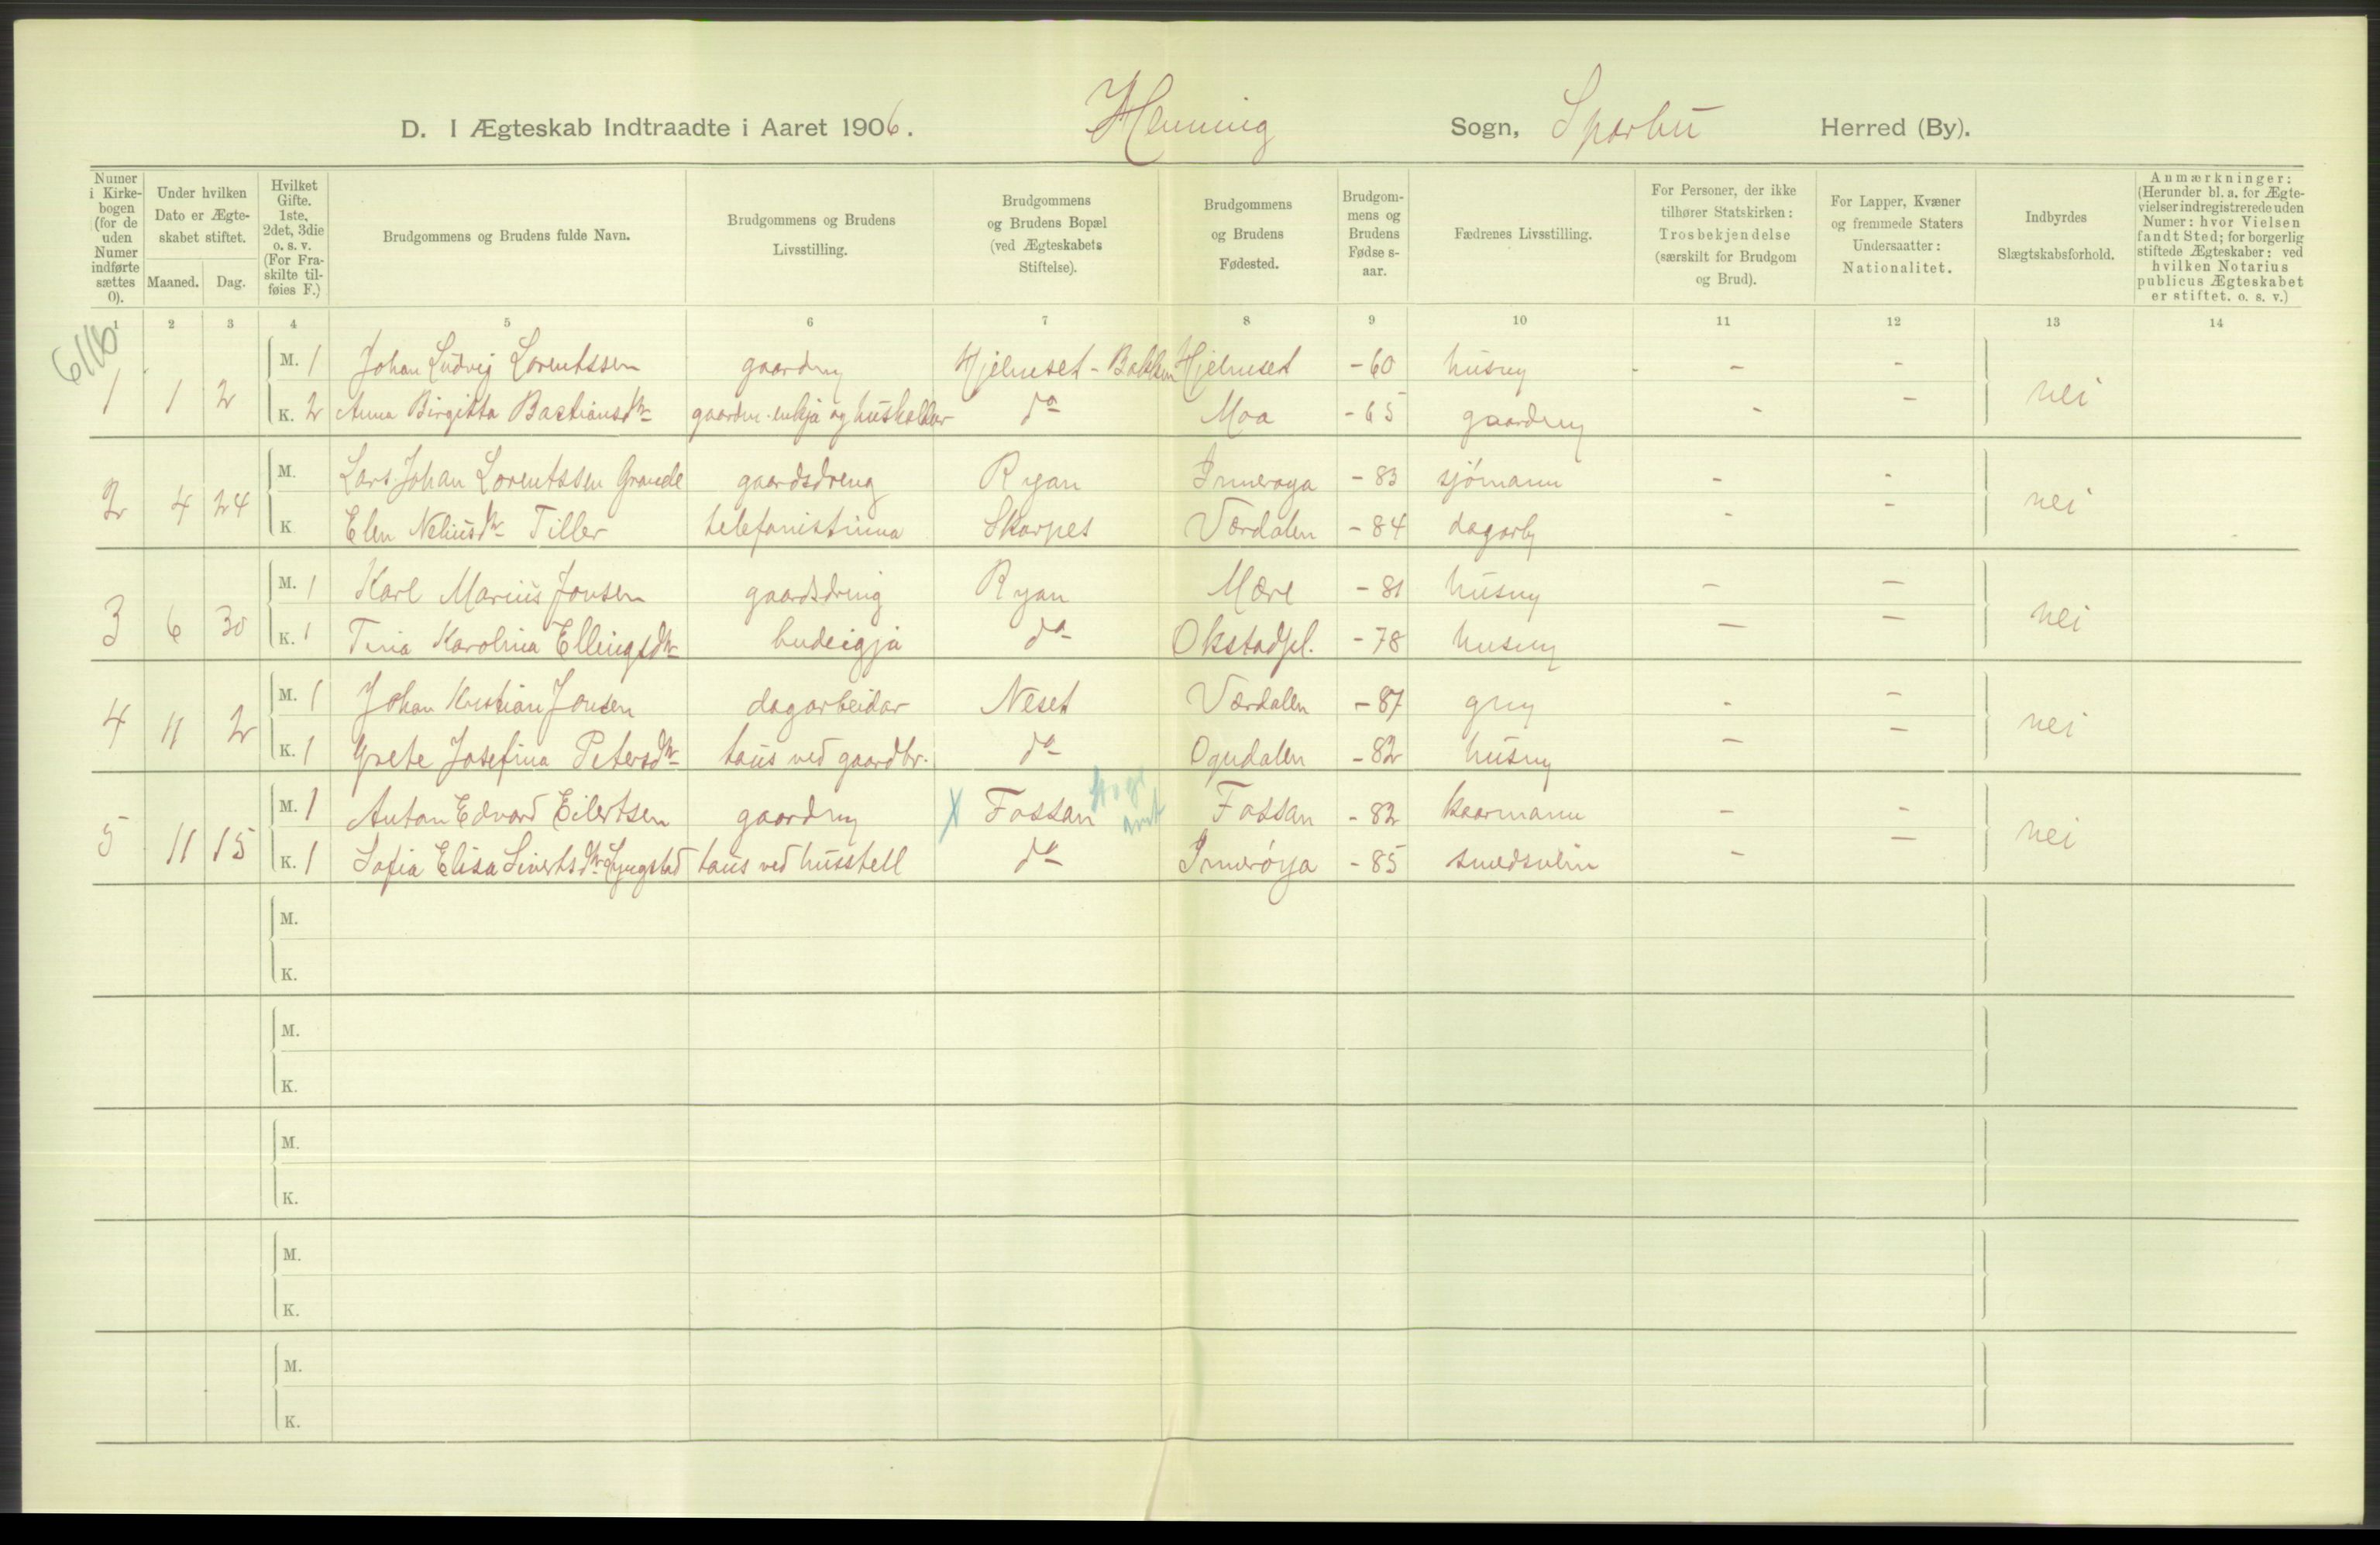 D. I Ægteskab Indtraadte i Aaret 1906. Henning Sogn, Sparbu Herred (By).
Numer i Kirkebogen (for de uden Numer indførte sættes 0).
Under hvilken Dato er Ægteskabet stiftet.
Maaned. Dag.
Hvilket Gifte. 1ste, 2det, 3die o. s. v. (For Fraskilte tilføies F.)
Brudgommens og Brudens fulde Navn.
Brudgommens og Brudens Livsstilling.
Brudgommens og Brudens Bopæl (ved Ægteskabets Stiftelse).
Brudgommens og Brudens Fødested.
Brudgommens og Brudens Fødselsaar.
Fædrenes Livsstilling.
For Personer, der ikke tilhører Statskirken: Trosbekjendelse (særskilt for Brudgom og Brud).
For Lapper, Kvæner og fremmede Staters Undersaatter: Nationalitet.
Indbyrdes Slægtskabsforhold.
Anmærkninger: (Herunder bl. a. for Ægtevielser indregistrerede uden Numer: hvor Vielsen fandt Sted; for borgerlig stiftede Ægteskaber: ved hvilken Notarius publicus Ægteskabet er stiftet. o. s. v.)
1 2 3 4 5 6 7 8 9 10 11 12 13 14
6116
1 1 2 M. 1 Johan Ludvig Lorentssen gaardmy Hjelmset - Bakken Hjelmset - 60 husmy - - nei
K. 2 Anna Birgitta Bastiansdtr gaardm. enkja og hushalder do Moa - 65 gaardmy - -
2 4 24 M. Lars Johan Lorentssen Grande gaardsdreng Ryan Inneroya - 83 sjömann - - nei
K. Elen Neliusdtr Tiller telefonistinna Skarpes Værdalen - 84 dagarb - -
3 6 30 M. 1 Karl Marius Jonsen gaardsdreng Ryan Mære - 81 husmy - - nei
K. 1 Tina Karolina Ellingsdtr budeigja do Okstadpl. - 78 husmy - -
4 11 2 M. 1 Johan Kristian Jonsen dagarbeidar Neset Værdalen - 87 gmy - - nei
K. 1 Grete Josefina Petersdtr taus ved gaardbr. do Ogndalen - 82 husmy - -
5 11 15 M. 1 Anton Edvard Eilertsen gaardmy X Fossan Fossan - 82 kaarmann - - nei
K. 1 Sofia Elisa Sivertsdtr Lyngstad taus ved husstell do Inneröya - 85 smedsvein - -
M.
K.
M.
K.
M.
K.
M.
K.
M.
K.